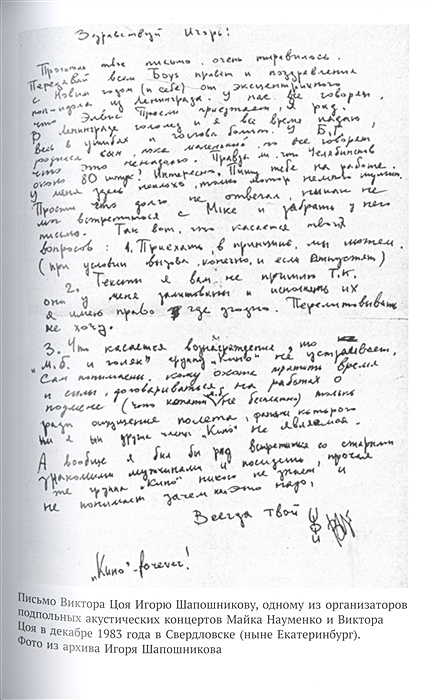 Здравствуй Игорь!
Прочитал твое письмо, очень понравилось.
Передавай всем Boys привет и поздравления
с Новым годом (и себе) от эксцентричного
поп-идола из Ленинграда. У нас все говорят,
что Элвис Просли приезжает, я рад.
В Ленинграде гололед и я все время падаю,
весь в ушибах и голова болит. У Б.Г.
родился сын, пока маленький, но все говорят
что это ненадолго. Правда ли, что Челябинсков
около 80 штук? Интересно. Пишу тебе на работе.
У меня здесь неплохо, только мотор немного шумит.
Прости что долго не отвечал, никак не
мог встретиться с Mike и забрать у него
письмо. Так вот, что касается твоих
вопросов: 1. Приехать, в принципе, мы можем.
(при условии вызова, конечно, и если отпустят)
2. Тексты я вам не пришлю т.к.
они у меня залитованы и исполнять их
я имею право где угодно. Перелитовывать
не хочу.
3. Что касается вознаграждения, то
"М.б. и голяк" группу "Кино" не устраивает.
Сам понимаешь, кому охота тратить время
и силы, договариваться на работах о
подмене (что м.б. не бесплатно) только
ради ощущения полета, фанаты которого
ни я ни другие члены "Кино" не являемся.
А вообще я был бы рад встретиться со старыми
знакомыми мужчинами и посидеть, прочая
же группа "Кино" никого не знает, и
не понимает зачем это надо,
Всегда твой
"Кино"-forever!
Письмо Виктора Цоя Игорю Шапошникову, одному из организаторов
подпольных акустических концертов Майка Науменко и Виктора
Цоя в декабре 1983 года в Свердловске (ныне Екатеринбург).
Фото из архива Игоря Шапошникова